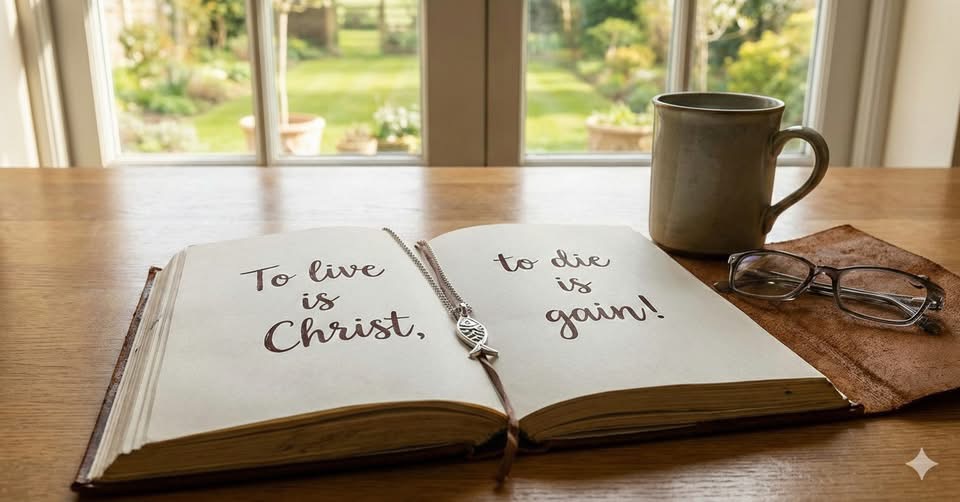 To live
is
Christ,
to die
is
gain!